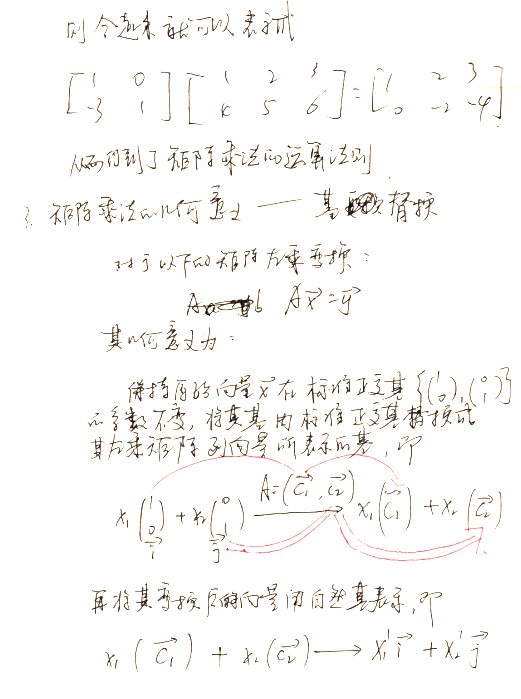 则合起来就可以表示成
[1 0 -3 1] [1 2 3 4 5 6] = [1 2 3 0 -2 -4]
从而得到了矩阵乘法的运算法则
3. 矩阵乘法的几何意义 —— 基替换
对于以下的矩阵左乘变换：
A\vec{x} = \vec{y}
其几何意义为：
保持原的向量\vec{x}在标准正交基{(1 0), (0 1)}
的系数不变，将其基由标准正交基替换成
其左乘矩阵列向量所表示的基，即
x₁(1 0) + x₂(0 1) A=(\vec{c₁}, \vec{c₂}) → x₁(\vec{c₁}) + x₂(\vec{c₂})
\vec{i} \vec{j}
再将其变换后的向量用自然基表示，即
x₁(\vec{c₁}) + x₂(\vec{c₂}) → x₁'\vec{i} + x₂'\vec{j}